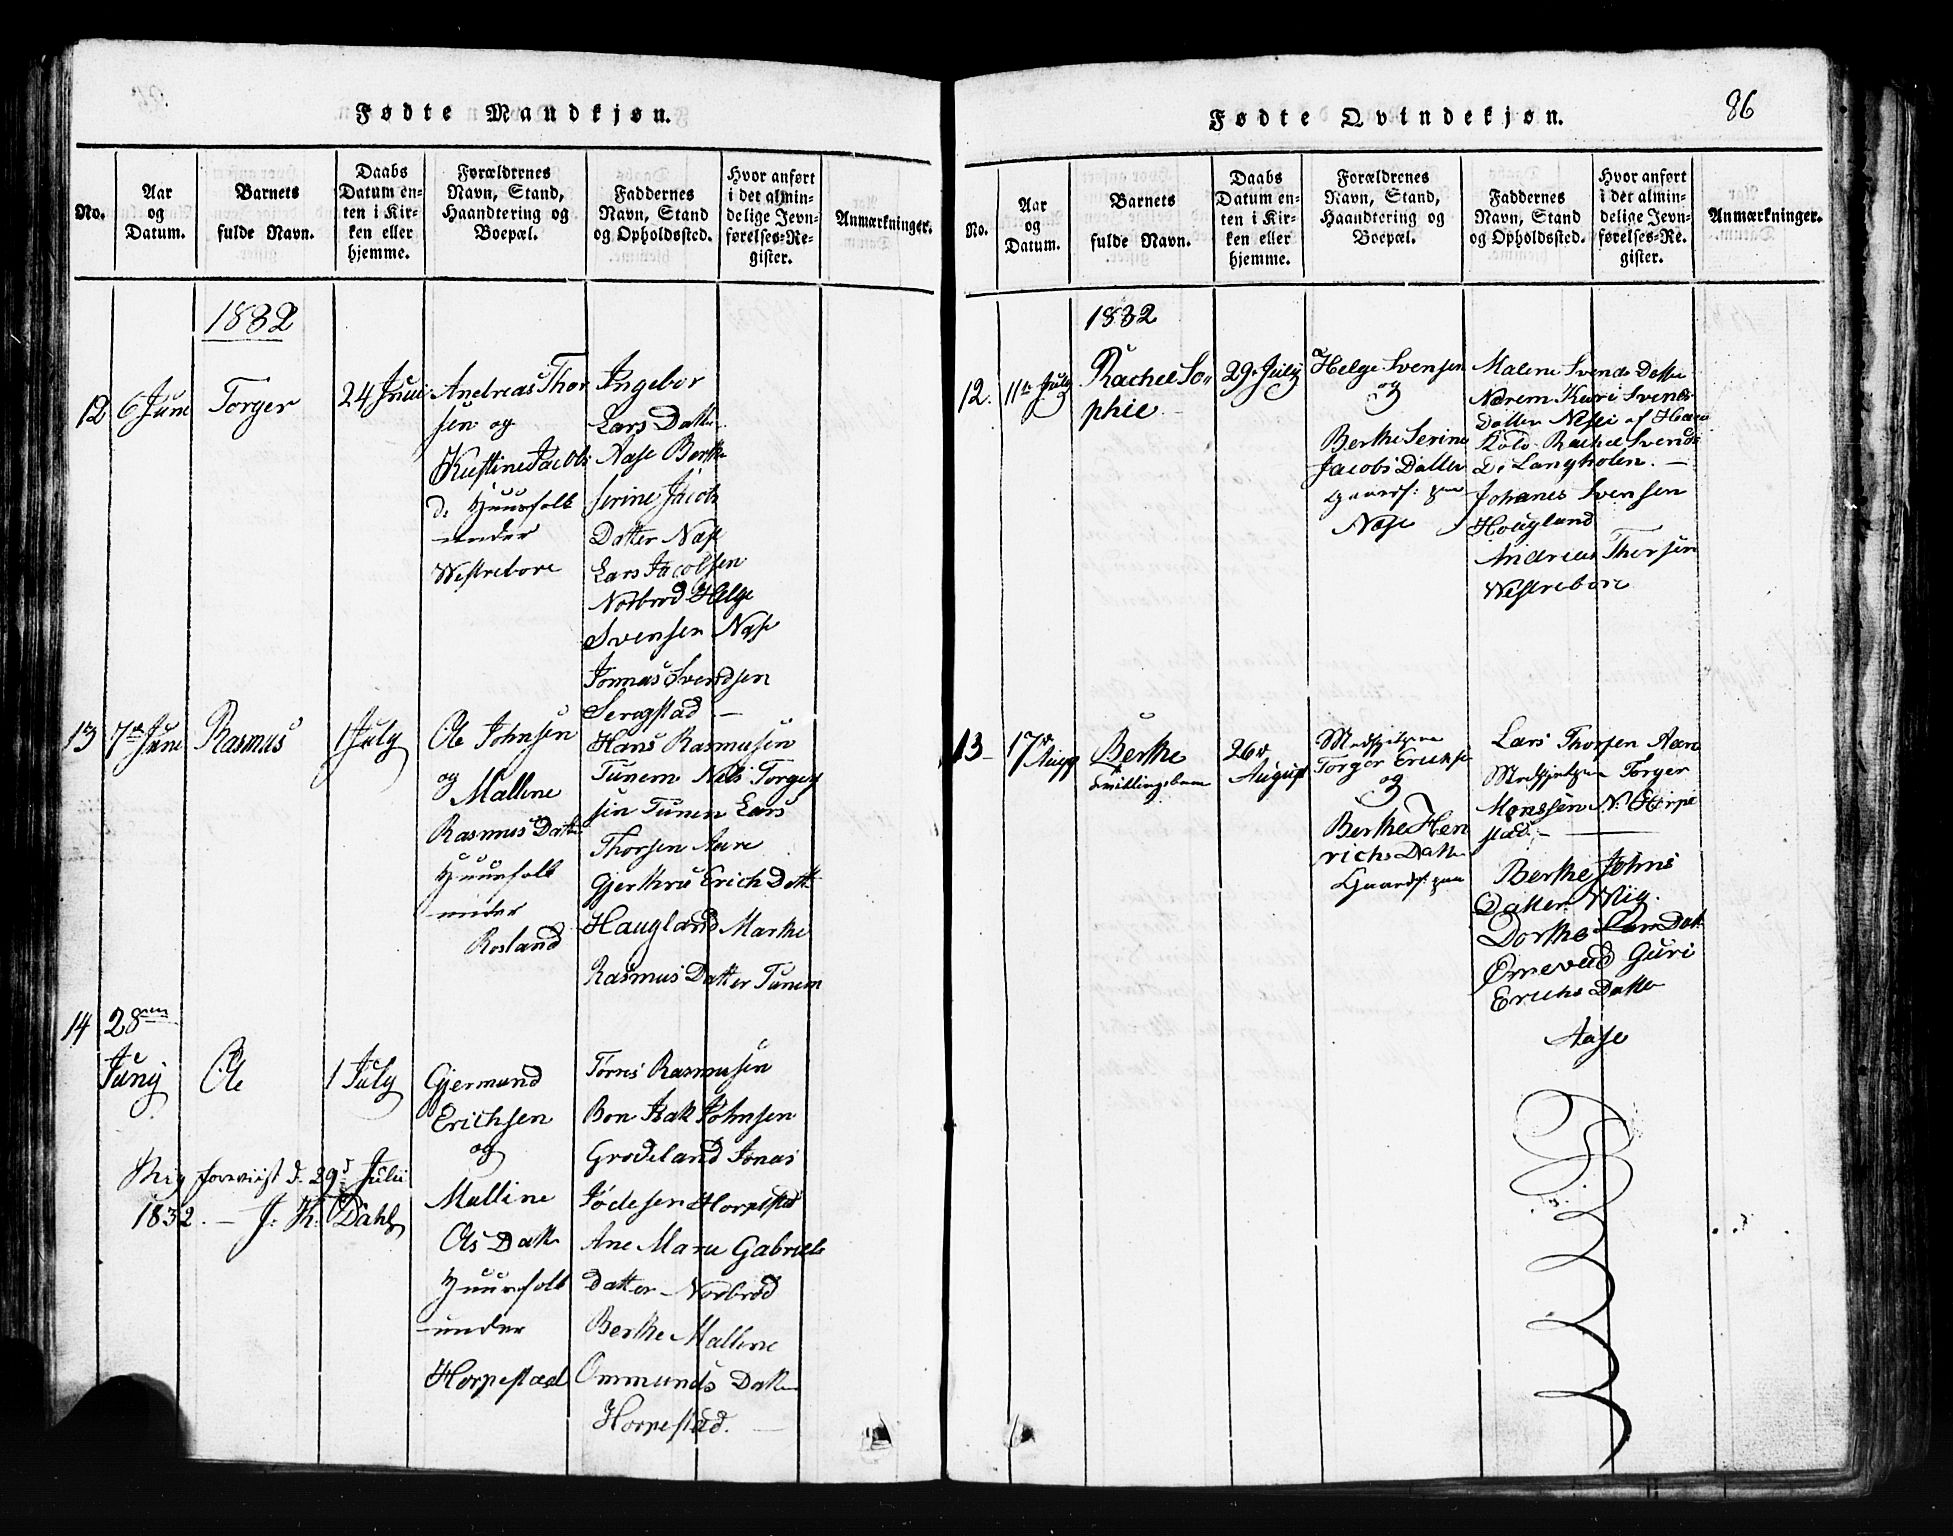 Fødte Mandkjøn.
No.
Aar
og
Datum.
Barnets
fulde Navn.
Daabs
Datum en-
ten i Kir-
ken eller
hjemme.
Forældrenes
Navn, Stand,
Haandtering og
Boepæl.
Faddernes
Navn, Stand
og Opholdssted.
Hvor anført
i det almin-
delige Jevn-
førelses-Re-
gister.
Anmærkninger.
1832
12
6 Juni
Torger
24 Juni
Andreas Thor
sen og
Kirstine Jacobs
D. Huusfolk
under
Westrebore
Ingebor
Lars Datter
Næse Berthe
Serine Jacobs
Datter Næse
Lars Jacobsen
Norbrod Helge
Svensen Næse
Jonnas Svendsen
Serigstad —
13
7de Juni
Rasmus
1 July
Ole Johnsen
og
Malline
Rasmus Datter
Huusfolk
under
Rosland
Hans Rasmusen
Tunem Nels Torger
sen Tunem Lars
Thorsen Aare
Gjerthru Erich Datt
Haugland Marthe
Rasmus Datter Tunem
14
28
Junij
Ole
1 July
Gjermund
Erichsen
og
Malline
Ols Datter
Huusfolk
under
Horpestad
Tørres Rasmusen
Bon Isak Johnsen
Grodeland Jonas
Horpestad
Ane Marie Gabriels
Datter Norbrod
Berthe Malline
Ommunds Datter
Horpestad. —
Mig foreviist d. 29d Julii
1832. — J: K: Dahl
Fødte Qvindekjøn.
86
No.
Aar
og
Datum.
Barnets
fulde Navn.
Daabs
Datum en-
ten i Kir-
ken eller
hjemme.
Forældrenes
Navn, Stand,
Haandtering og
Boepæl.
Faddernes
Navn, Stand
og Opholdssted.
Hvor anført
i det almin-
delige Jevn-
førelses-Re-
gister.
Anmærkninger.
1832
12.
11te July
Rachel So-
phie
29de July
Helge Svensen
og
Berthe Serine
Jacobs Datter
Næse
Malene Svends Datter
Nærem Kari Svends
Datter Nesse af
Rachel Svends
D: Langholen. —
Johanes Svensen
Hougland
Andreas Thorsen
Westrebore
13
17de
Aug
Berthe
tvillingebarn
26de
August
Torger Erichse
og
Berthe Hen
richs Datter
Lars Thorsen Aare
Torger
Monssen N. Horpe
stad. —
Berthe Johns
Datter Wiig.
Dorthe Lars Datt
Ørneved Guri
Erichs Datter
Aase